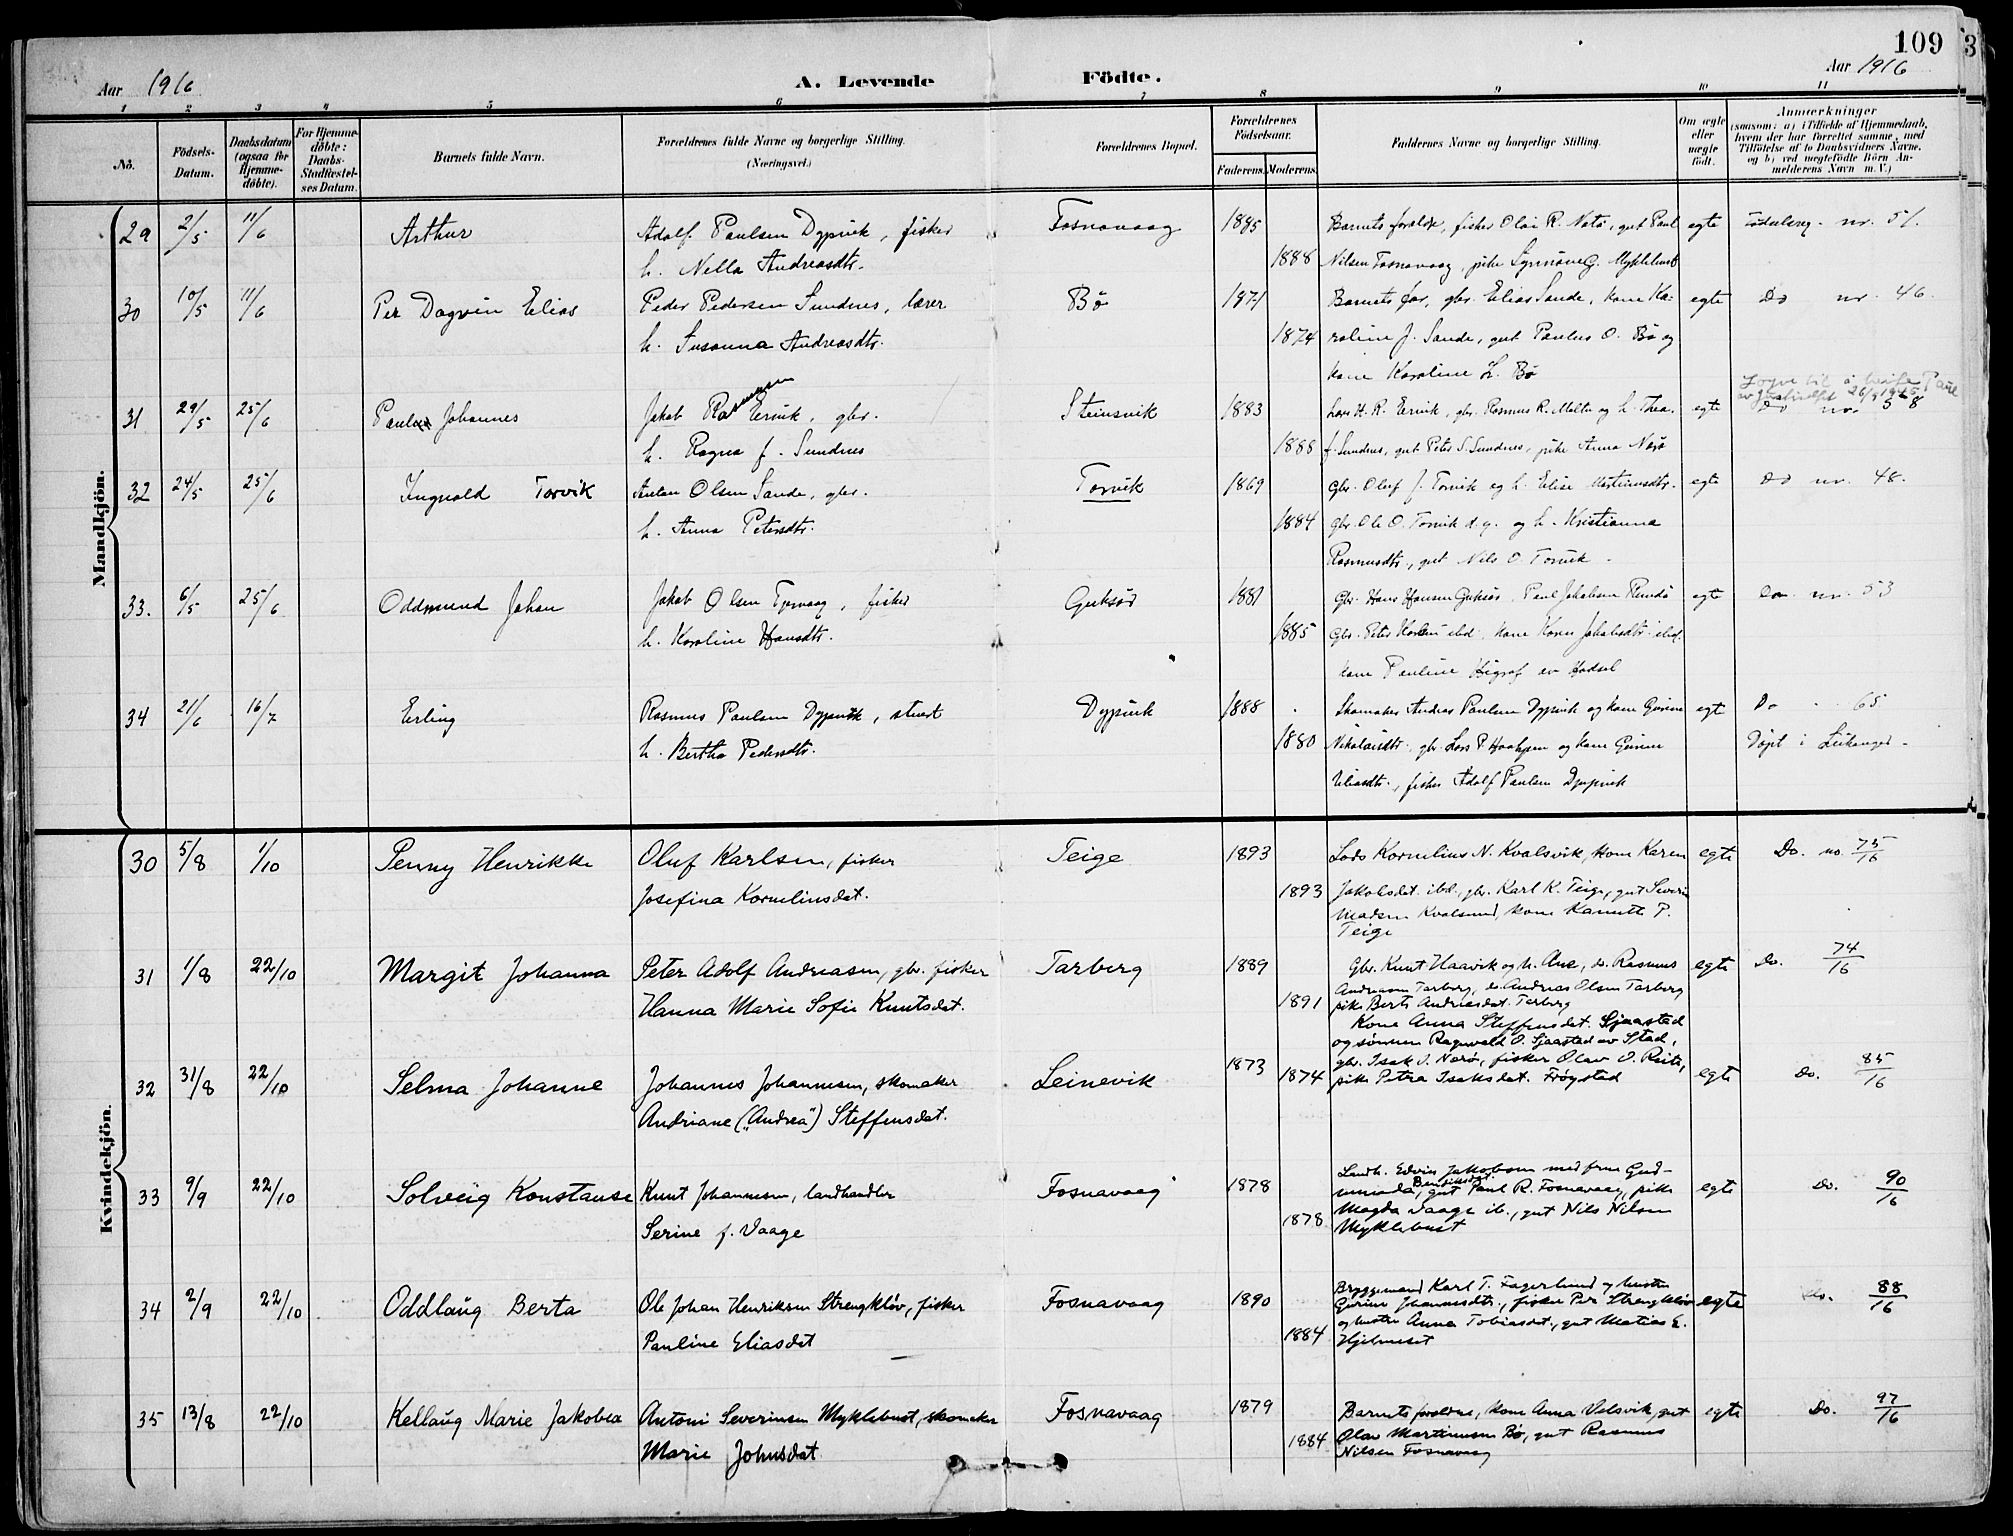 109
3
Aar 1916
A. Levende Födte.
Aar 1916
1 2 3 4 5 6 7 8 9 10 11
No.
Födsels-Datum.
Daabsdatum (ogsaa for Hjemme-döbte).
For Hjemme-döbte: Daabs-Stadfæstel-ses Datum.
Barnets fulde Navn.
Forældrenes fulde Navne og borgerlige Stilling.
(Næringsvei.)
Forældrenes Bopæl.
Forældrenes Födselsaar.
Faderens. Moderens.
Faddernes Navne og borgerlige Stilling.
Om ægte eller uægte födt.
Anmærkninger
(saasom: a) i Tilfælde af Hjemmedaab, hvem der har forrettet samme, med Tilföielse af to Daabsvidners Navne, og b) ved uægtefödte Börn An-melderens Navn m. V.)
Mandkjön.
29 2/5 11/6 Arthur Adolf Paulsen Dypvik, fisker Fosnavaag 1885 Barnets foreldre, fisker Olai R. Notø, gut Paul egte Fødselsreg. nr. 51.
h. Nella Andreasdtr. 1888 Nilsen Fosnavaag, pike Synnøve G. Myklebust
30 10/5 11/6 Per Dagvin Elias Peder Pedersen Sundnes, lærer Bø 1871 Barnets far, gbr. Elias Sande, kone Ka- egte Do nr. 46.
h. Susanna Andreasdtr. 1874 roline J. Sande, gut Paulus O. Bø og
kone Karoline L. Bø
av 26/9 1945
31 29/5 25/6 Johannes Jakob Rasmussen Ervik, gbr. Steinsvik 1883 Lars H. R. Ervik, gbr. Rasmus R. Molta og h. Thea egte Do nr. 58
h. Ragna f. Sundnes 1888 f. Sundnes, gut Peter S. Sundnes, pike Anna Nærø
32 24/5 25/6 Ingvald Torvik Anton Olsen Sande, gbr. Torvik 1869 Gbr. Oluf J. Torvik og h. Elise Martinusdtr. egte Do nr. 48.
h. Anna Petersdtr. 1884 gbr. Ole O. Torvik d.y. og h. Kristianna
Rasmusdtr., gut Nils O Torvik
33. 6/5 25/6 Oddmund Johan Jakob Olsen Tjervaag, fisker Gjerksø 1881 Gbr. Hans Hansen Paul Jakobsen Rundø egte Do nr. 53
h. Karoline Hansdtr. 1885 Gbr. Peter ibid. kone Karen Jakobsdtr. ibid.
kone Pauline av Hadsel
34 21/6 16/7 Erling Rasmus Paulsen Dypvik, stuert Dypvik 1888 Skomaker Andreas Paulsen Dypvik og kone Gurine egte Do 65
h. Bertha Pedersdtr. 1880 Nikolaidtr., gbr. Lars P. og kone Gurine Døpt i Leikanger
Eliasdtr., fisker Adolf Paulsen Dypvik
Kvindekjön.
30 5/8 1/10 Penny Henrikke Oluf Karlsen, fisker Teige 1893 Lods Kornelius N. Kvalsvik, kone Karen egte Do. no. 75/16
Josefina Kornelinsdat. 1893 Jakobsdat. ibd., gbr. Karl K. Teige, gut Severin
Madsen Kvalsund, kone Kanutte P.
Teige
31 1/8 22/10 Margit Johanna Peter Adolf Andreasen, gbr. fisker Tarberg 1889 Gbr. Knut Haavik og h. Ane, do. Rasmus egte Do. 74/16
Hanna Marie Sofie Knutsdat. 1891 Andreasen Tarberg, do. Andreas Olsen Tarberg
pike Berte Andreasdat. Tarberg
Kone Anna Steffensdat. Sjaastad
og sønnen Ragnvald O. Sjaastad av Stad,
32 31/8 22/10 Selma Johanne Johannes Johannesen, skomaker Leinevik 1873 gbr. Isak J. Nærø, fisker Olav O. Reite,
Andriane ("Andrea") Steffensdat. 1874 pike Petra Isaksdat. Frøystad egte Do. 85/16
33 9/9 22/10 Solveig Konstanse Knut Johannesen, landhandler Fosnavaag 1878 Landh. Edvin Jakobsen med frue Gud- egte Do. 90/16
Serine f. Vaage 1878 munda Bendiksdat., gut Paul R. Fosnavaag, pike
Magda Vaage ib., gut Nils Nilsen
Myklebust
34 2/9 22/10 Oddlaug Berta Ole Johan Henriksen Strengkløv, fisker Fosnavaag 1890 Bryggemand Karl T. Fagerlund og hustru
Pauline Eliasdat 1884 Gurine Johannesdtr., fisker Per Strengkløv egte do. 88/16
og hustru Anna Tobiasdat., gut Matias E.
Hjelmeset
35 13/8 22/10 Kellaug Marie Jakobea Antoni Severinsen Myklebust, skomaker Fosnavaag 1879 Barnets foreldre, kone Anna Velsvik, gut egte Do. 97/16
Marie Johnsdat 1884 Olav Martinusen Bø, gut Rasmus
Nilsen Fosnavaag